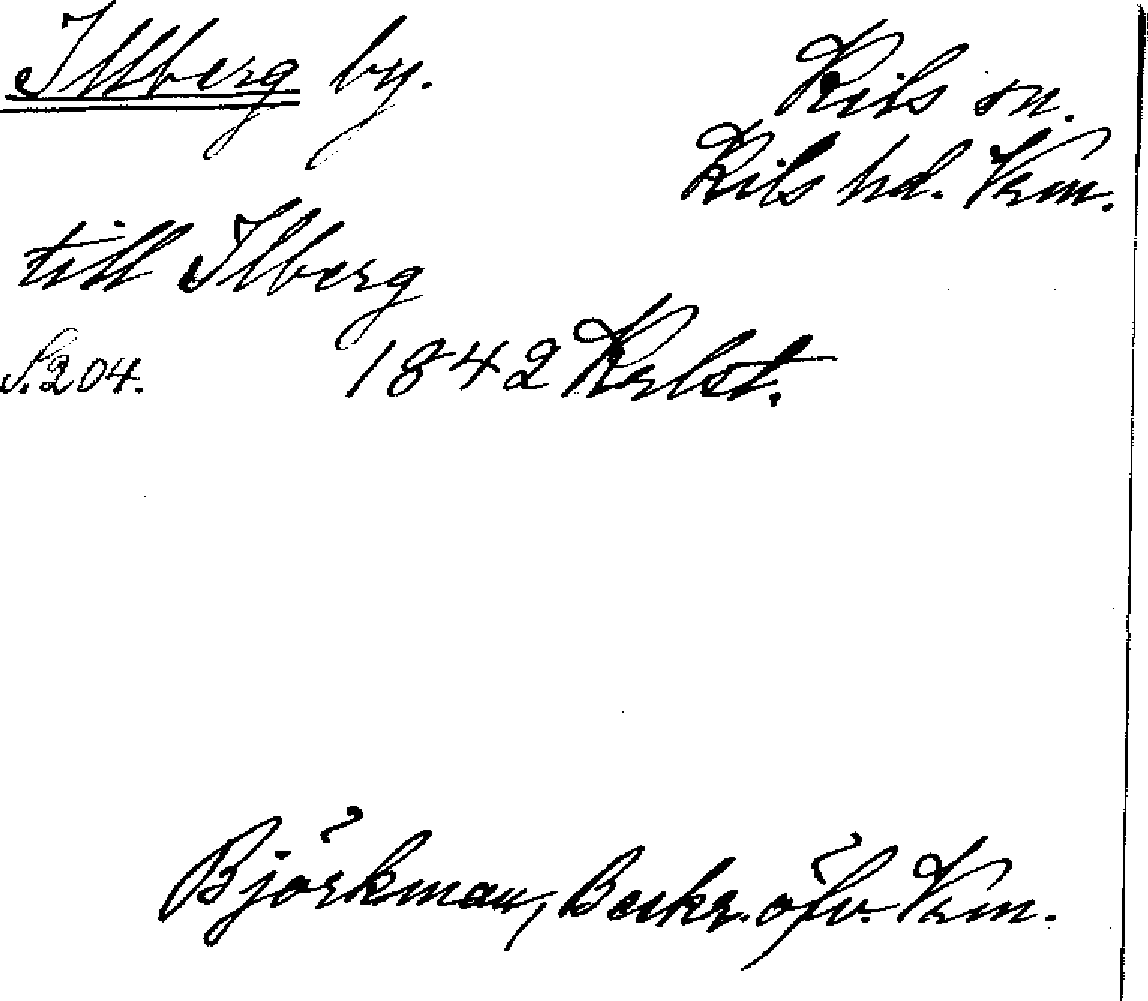 Illberg by.
Kils sn.
Kils hd. Vrm.
till Ilberg
S. 204. 1842 Krlst.
Björkman, Beskr. öfv. Vrm.